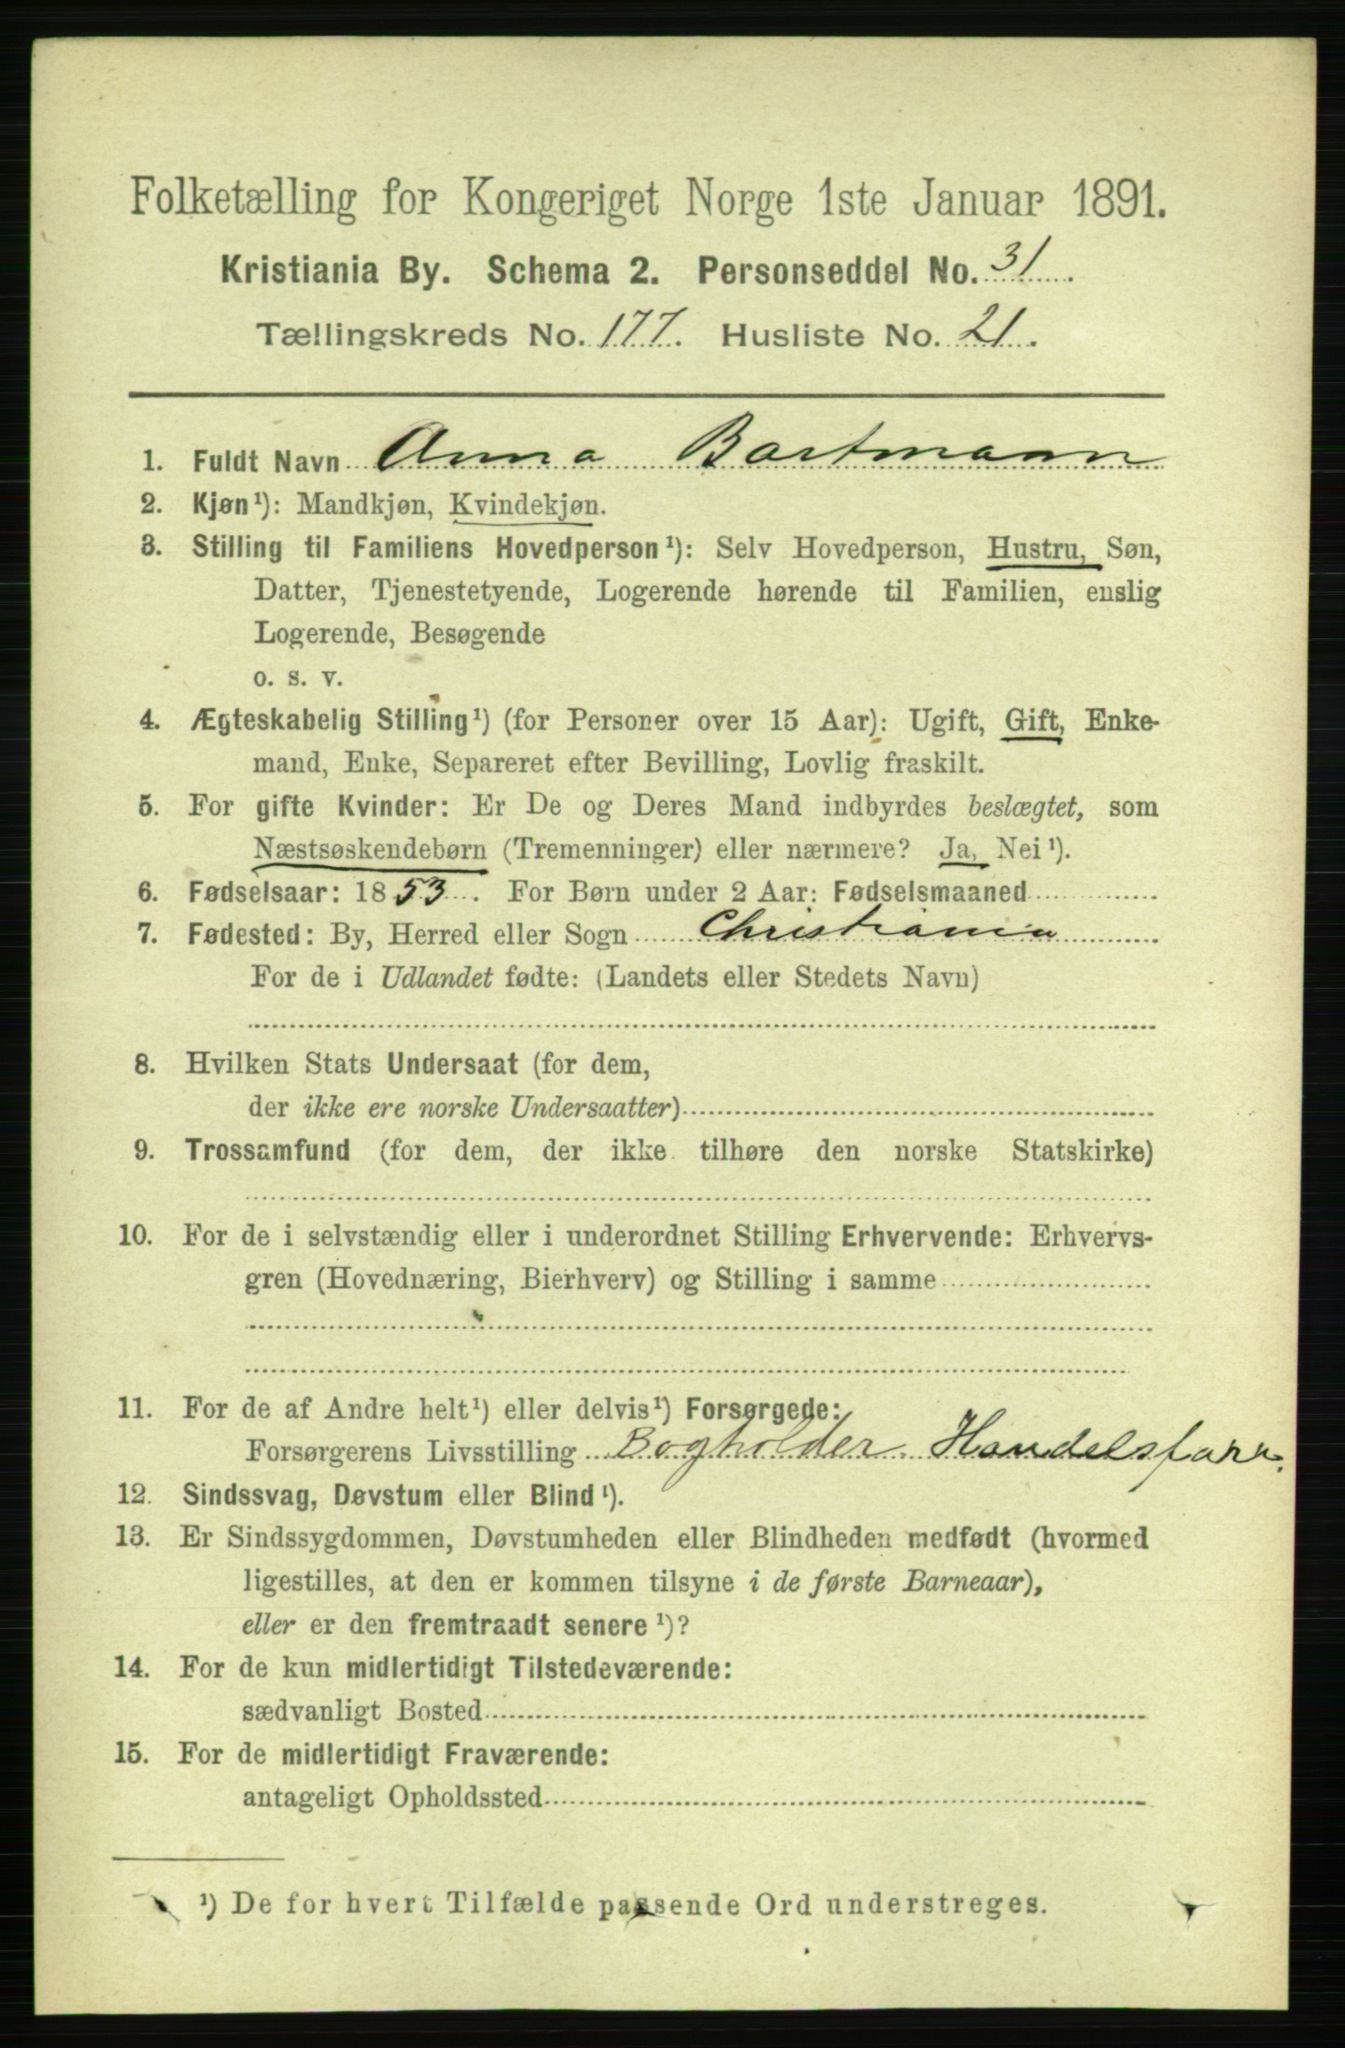 Folketælling for Kongeriget Norge 1ste Januar 1891.
Kristiania By. Schema 2. Personseddel No. 31.
Tællingskreds No. 177. Husliste No. 21.
1. Fuldt Navn Anna Bartmann
2. Kjøn¹): Mandkjøn, Kvindekjøn.
3. Stilling til Familiens Hovedperson¹): Selv Hovedperson, Hustru, Søn,
Datter, Tjenestetyende, Logerende hørende til Familien, enslig
Logerende, Besøgende
o. s. v.
4. Ægteskabelig Stilling¹) (for Personer over 15 Aar): Ugift, Gift, Enke-
mand, Enke, Separeret efter Bevilling, Lovlig fraskilt.
5. For gifte Kvinder: Er De og Deres Mand indbyrdes beslægtet, som
Næstsøskendebørn (Tremenninger) eller nærmere? Ja, Nei¹).
6. Fødselsaar: 1853. For Børn under 2 Aar: Fødselsmaaned
7. Fødested: By, Herred eller Sogn Christiania
For de i Udlandet fødte: (Landets eller Stedets Navn)
8. Hvilken Stats Undersaat (for dem,
der ikke ere norske Undersaatter)
9. Trossamfund (for dem, der ikke tilhøre den norske Statskirke)
10. For de i selvstændig eller i underordnet Stilling Erhvervende: Erhvervs-
gren (Hovednæring, Bierhverv) og Stilling i samme
11. For de af Andre helt¹) eller delvis¹) Forsørgede:
Forsørgerens Livsstilling Bogholder. Handelsforr.
12. Sindssvag, Døvstum eller Blind¹).
13. Er Sindssygdommen, Døvstumheden eller Blindheden medfødt (hvormed
ligestilles, at den er kommen tilsyne i de første Barneaar),
eller er den fremtraadt senere¹)?
14. For de kun midlertidigt Tilstedeværende:
sædvanligt Bosted
15. For de midlertidigt Fraværende:
antageligt Opholdssted
¹) De for hvert Tilfælde passende Ord understreges.